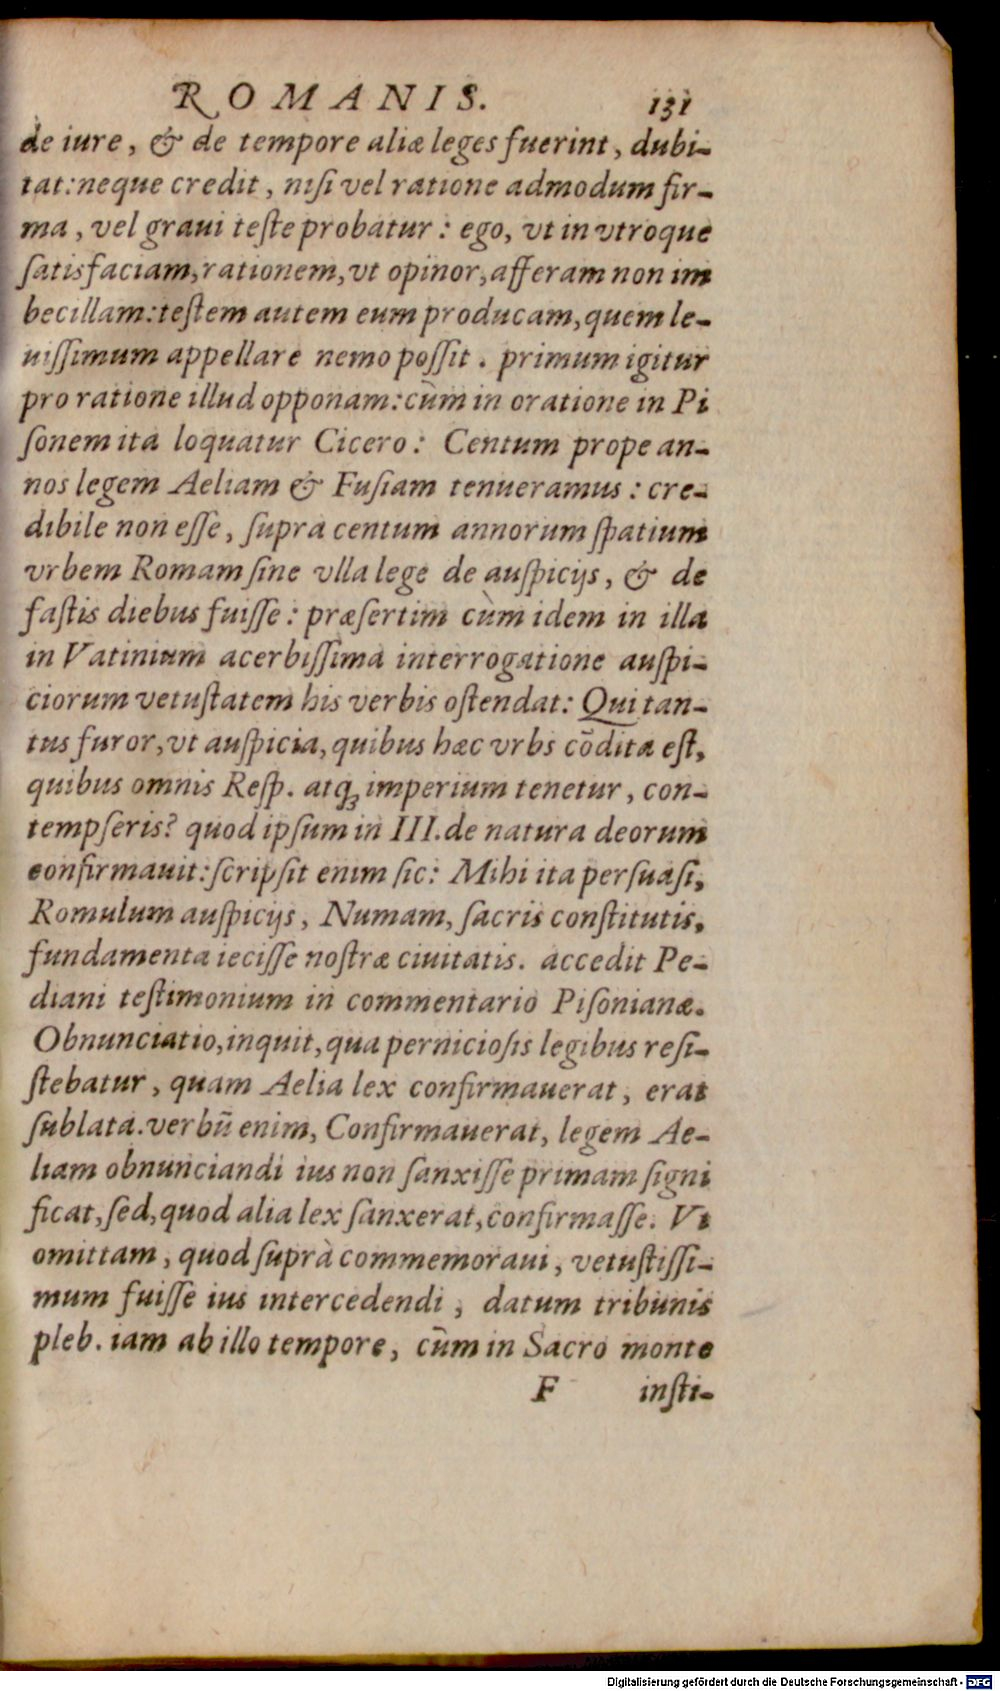 ROMANIS. 131
de iure, & de tempore aliæ leges fuerint, dubi-
tat: neque credit, nisi vel ratione admodum fir-
ma, vel graui teste probatur: ego, vt in vtroque
satisfaciam, rationem, vt opinor, afferam non im
becillam: testem autem eum producam, quem le-
uissimum appellare nemo possit. primum igitur
pro ratione illud opponam: cùm in oratione in Pi
sonem ita loquatur Cicero: Centum prope an-
nos legem Aeliam & Fusiam tenueramus: cre-
dibile non esse, supra centum annorum spatium
vrbem Romam sine vlla lege de auspicijs, & de
fastis diebus fuisse: præsertim cùm idem in illa
in Vatinium acerbissima interrogatione auspi-
ciorum vetustatem his verbis ostendat: Qui tan-
tus furor, vt auspicia, quibus hæc vrbs cōdita est,
quibus omnis Resp. atq; imperium tenetur, con-
tempseris? quod ipsum in III. de natura deorum
confirmauit: scripsit enim sic: Mihi ita persuasi,
Romulum auspicijs, Numam, sacris constitutis,
fundamenta iecisse nostræ ciuitatis. accedit Pe-
diani testimonium in commentario Pisonianæ.
Obnunciatio, inquit, qua perniciosis legibus resi-
stebatur, quam Aelia lex confirmauerat, erat
sublata. verbū enim, Confirmauerat, legem Ae-
liam obnunciandi ius non sanxisse primam signi
ficat, sed, quod alia lex sanxerat, confirmasse. Vt
omittam, quod suprà commemoraui, vetustissi-
mum fuisse ius intercedendi, datum tribunis
pleb. iam ab illo tempore, cùm in Sacro monte
F insti-
Digitalisierung gefördert durch die Deutsche Forschungsgemeinschaft - DFG